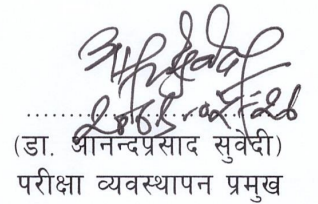 (डा. आनन्दप्रसाद सुवेदी)
परीक्षा व्यवस्थापन प्रमुख